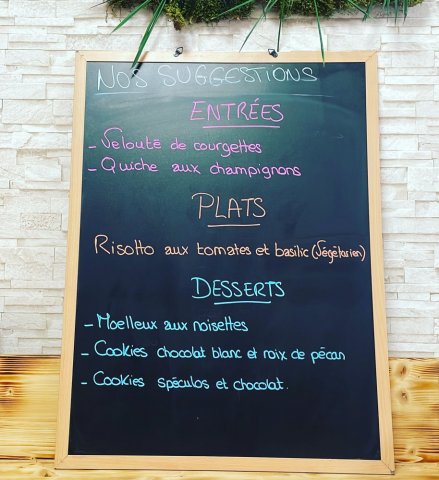 NOS SUGGESTIONS
ENTRÉES
- Velouté de courgettes
- Quiche aux champignons
PLATS
Risotto aux tomates et basilic (Végétarien)
DESSERTS
- Moelleux aux noisettes
- Cookies chocolat blanc et noix de pécan
- Cookies spéculos et chocolat.